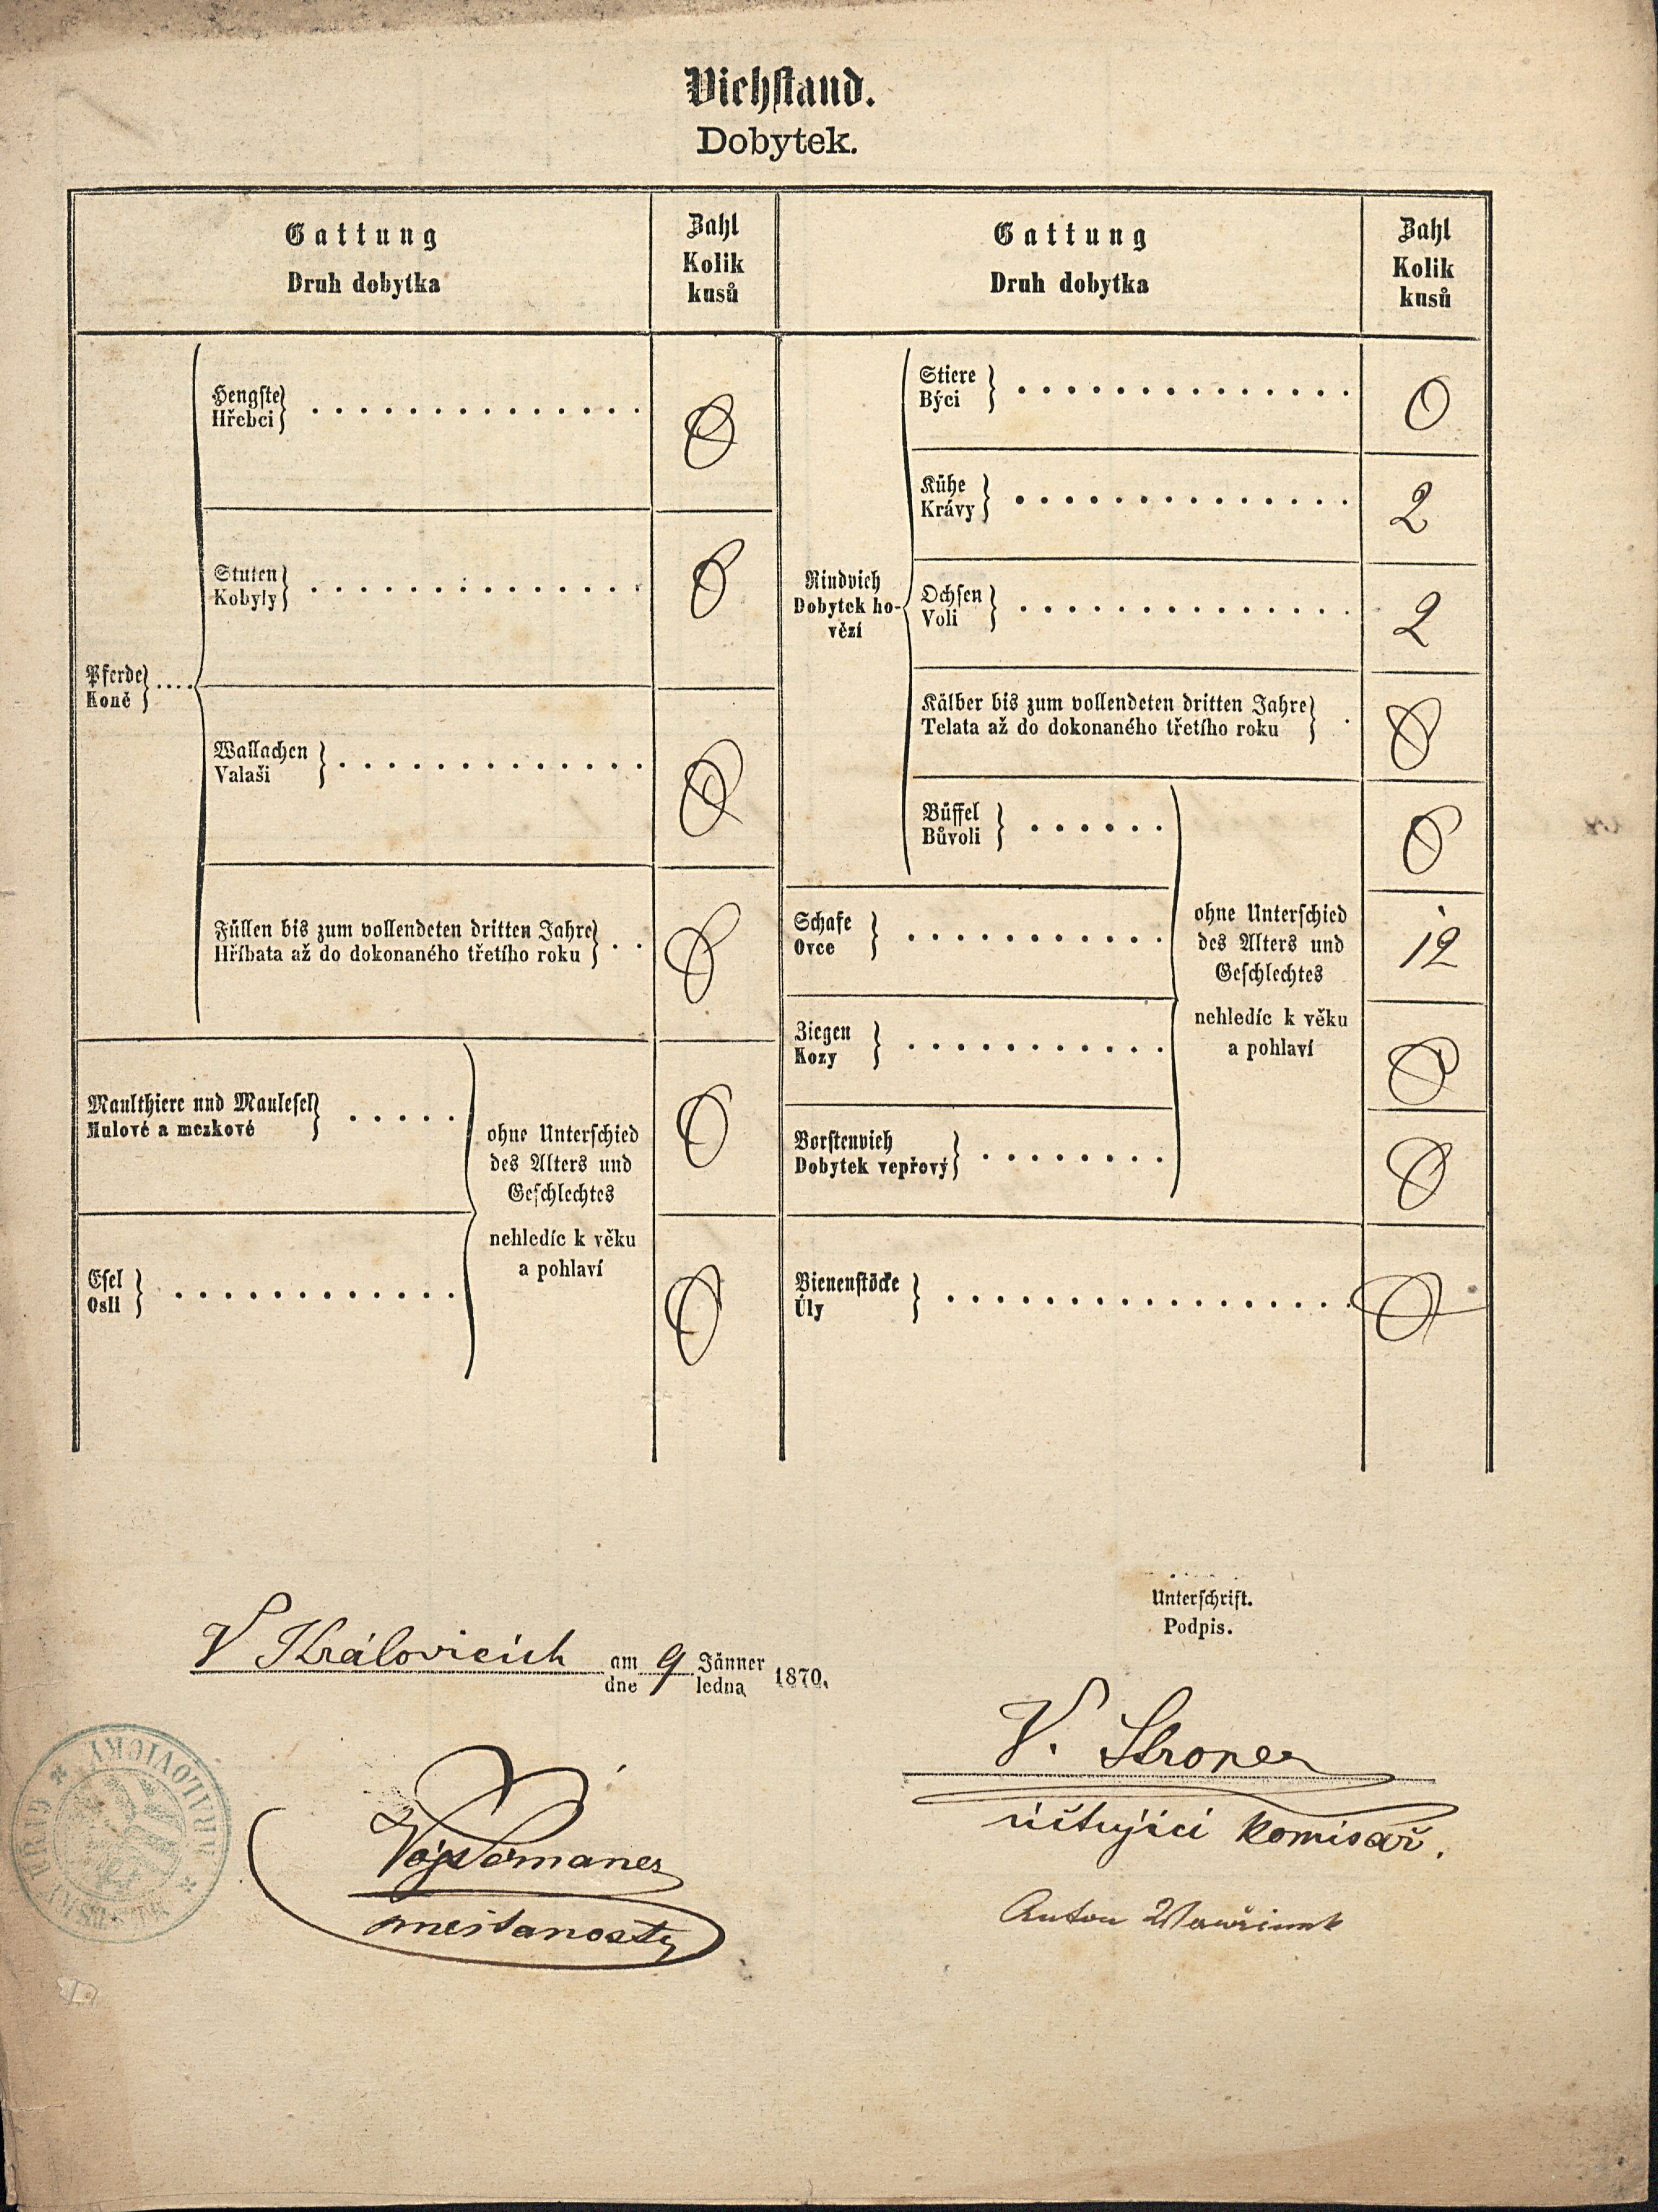 Viehstand.
Dobytek.
Gattung
Druh dobytka
Zahl
Kolik
kusů
Gattung
Druh dobytka
Zahl
Kolik
kusů
Pferde
Koně
Hengste
Hřebci
0
Stuten
Kobyly
0
Wallachen
Valaši
0
Füllen bis zum vollendeten dritten Jahre
Hříbata až do dokonaného třetího roku
0
Maulthiere und Maulesel
Mulové a mezkové
0
Esel
Osli
0
ohne Unterschied
des Alters und
Geschlechtes
nehledíc k věku
a pohlaví
Rindvieh
Dobytek ho-
vězí
Stiere
Býci
0
Kühe
Krávy
2
Ochsen
Voli
2
Kälber bis zum vollendeten dritten Jahre
Telata až do dokonaného třetího roku
0
Büffel
Bůvoli
0
Schafe
Ovce
12
Ziegen
Kozy
0
Borstenvieh
Dobytek vepřový
0
ohne Unterschied
des Alters und
Geschlechtes
nehledíc k věku
a pohlaví
Bienenstöcke
Úly
0
Unterschrift.
Podpis.
V Královicích am 9 Jänner 1870.
dne ledna
V.
účtující komisař.
Anton